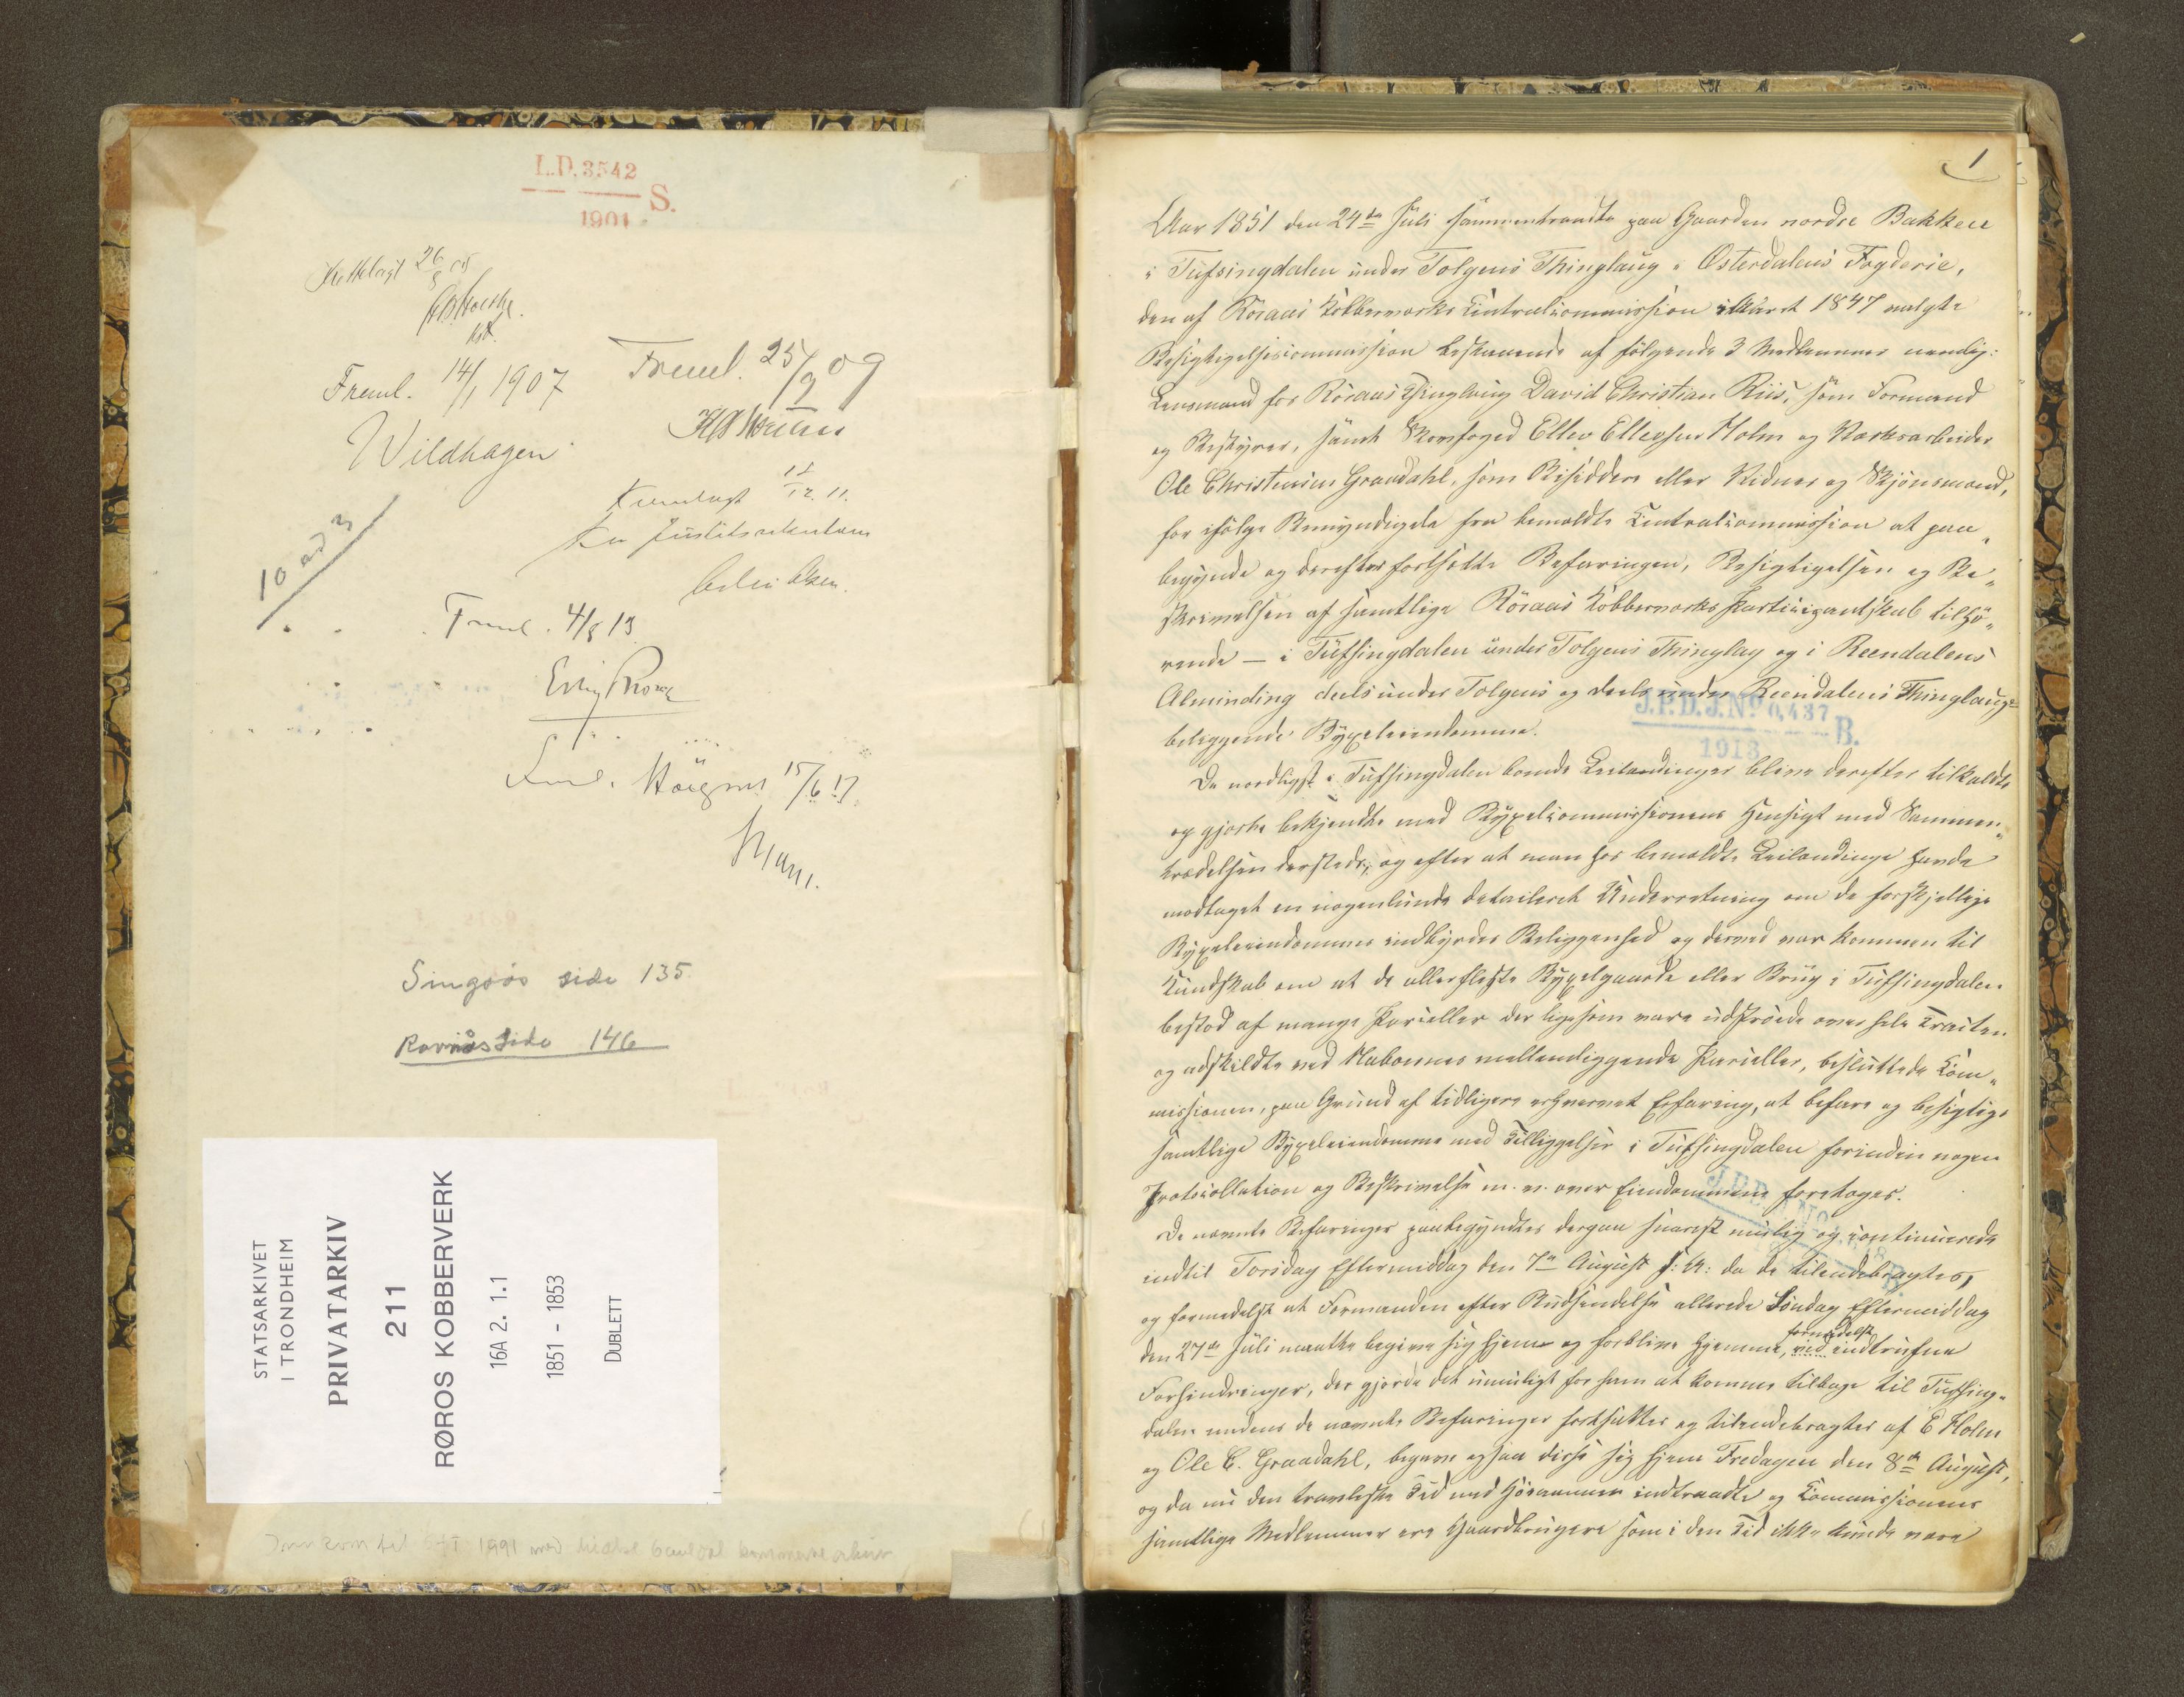 L.D. 3542
1901 S.
Fremlagt 26/8 05
Freml. 14/1 1907
Wildhagen
Freml. 25/9 09
Fremlagt 12/12.11.
10 ad 3
Freml. 4/8 13
Freml. 15/6 17
Singsås side 135
side 146
STATSARKIVET
I TRONDHEIM
PRIVATARKIV
211
RØROS KOBBERVERK
16A 2. 1.1
1851 - 1853
DUBLETT
1991 med
1
Aar 1851 den 24de Juli sammentraadte paa Gaarden nordre Bakken
i Tufsingdalen under Tolgens Thinglaug i Østerdalens Fogderie,
den af Röraas Kobberværks Centralcommission i Marts 1847 valgte
Besigtigelsescommission bestaaende af følgende 3 Medlemmer nemlig:
Lensmand for Röraas Thinglaug David Christian Riis, som Formand
og Bestyrer, samt Skovfoged Ellev Ellevsen Holm og Værksarbeider
Ole Christensen Graadahl, som Bisiddere eller Vidner og Skjönsmænd,
for ifölge Bemyndigelse fra bemeldte Centralcommission at paa„
begynde og derefter fortsætte Befaringen, Besigtigelsen og Be„
skrivelsen af samtlige Röraas Kobberværks Participantskab tilhö„
rende – i Tufsingdalen under Tolgens Thinglag og i Reendalens
Alminding deels under Tolgens og deels under Reendalens Thinglaug
beliggende Bygseleiendomme.
J.P.D.J.No 0,437 B.
1913
De nordligst i Tufsingdalen boende Leilændinger bleve derefter tilkaldte
og gjorte bekjendte med Bygselcommissionens Hensigt med Sammen„
trædelsen dersteds, og efter at man hos bemeldte Leilændinge havde
modtaget en nogenlunde detailleret Underretning om de forskjellige
Bygseleiendommes indbyrdes Beliggenhed og derved var kommen til
Kundskab om at de allerfleste Bygselgaarde eller Brug i Tufsingdalen
bestod af mange Parceller der ligesom vare udströede over hele Tracten
og adskildte ved Naboernes mellemliggende Parceller, besluttede Com„
missionen, paa Grund af tidligere erhvervet Erfaring, at befare og besigtige
samtlige Bygseleiendomme med Tilliggelser i Tufsingdalen forinden nogen
Protocollation og Beskrivelse m. v. over Eiendommene foretoges.
De nævnte Befaringer paabegyndtes derpaa snarest mulig og continuerede
indtil Torsdag Eftermiddag den 7de August s: A: da de tilendebragtes,
og formedelst at Formanden efter Budsendelse allerede Söndag Eftermiddag
den 27de Juli maatte begive sig hjem og forblive hjemme, ved indtrufne
formedelst
Forhindringer, der gjorde det umuligt for ham at komme tilbage til Tufsing„
dalen medens de nævnte Befaringer fortsattes og tilendebragtes af E Holm
og Ole C. Graadahl, begave ogsaa disse sig hjem Fredagen den 8de August,
og da nu den travleste Tid med Höeaannen indtraadte og Commissionens
samtlige Medlemmer ere Gaardbrugere som i den Tid ikke kunde være